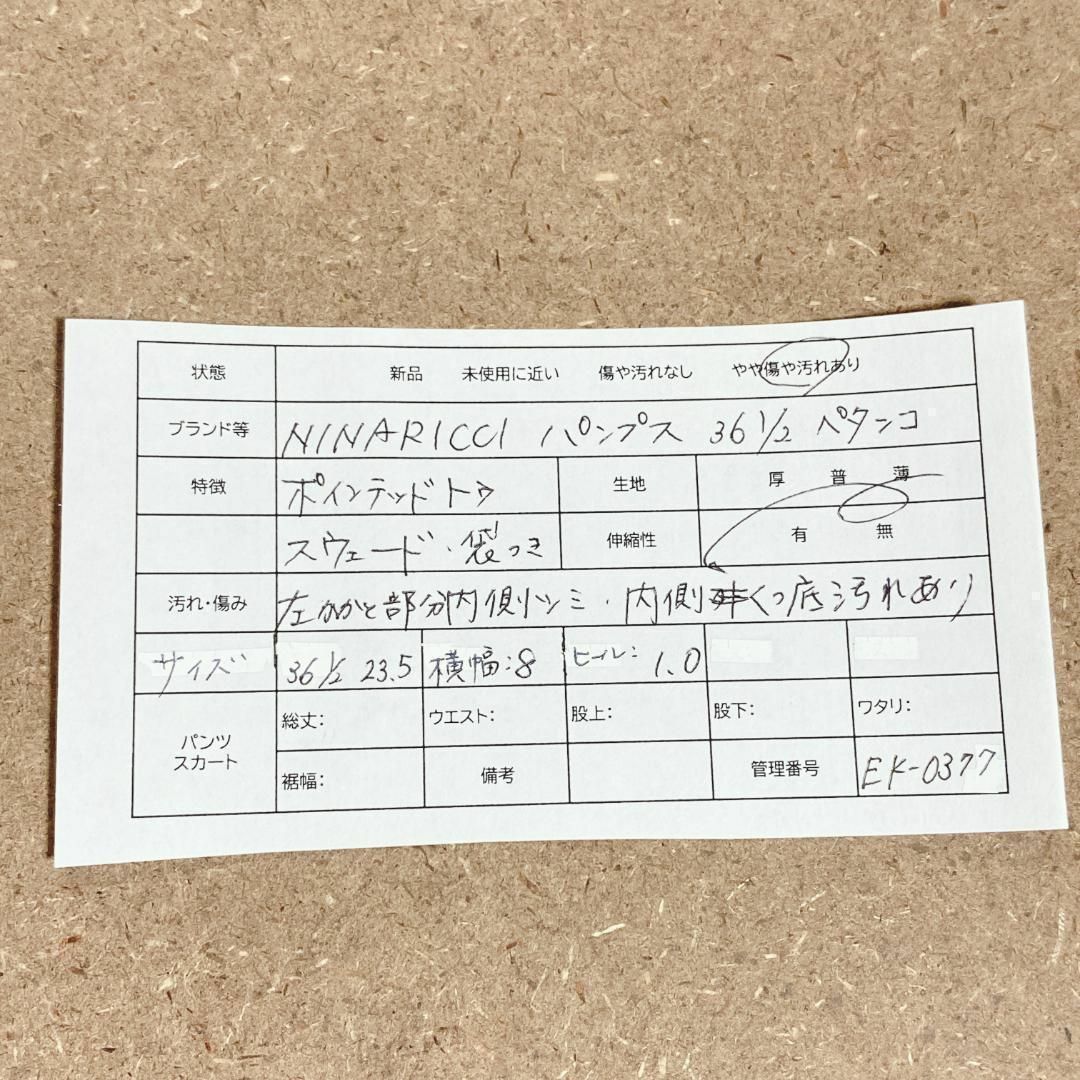 状態 新品 未使用に近い 傷や汚れなし やや傷や汚れあり
ブランド等 NINARICCI パンプス 36 1/2 ペタンコ
特徴 ポインテッドトゥ 生地 厚 普 薄
スウェード・袋つき 伸縮性 有 無
汚れ・傷み 左かかと部分内側シミ・内側くつ底汚れあり
サイズ 36 1/2 23.5 横幅:8 ヒール: 1.0
パンツ スカート 総丈: ウエスト: 股上: 股下: ワタリ:
裾幅: 備考 管理番号 EK-0377